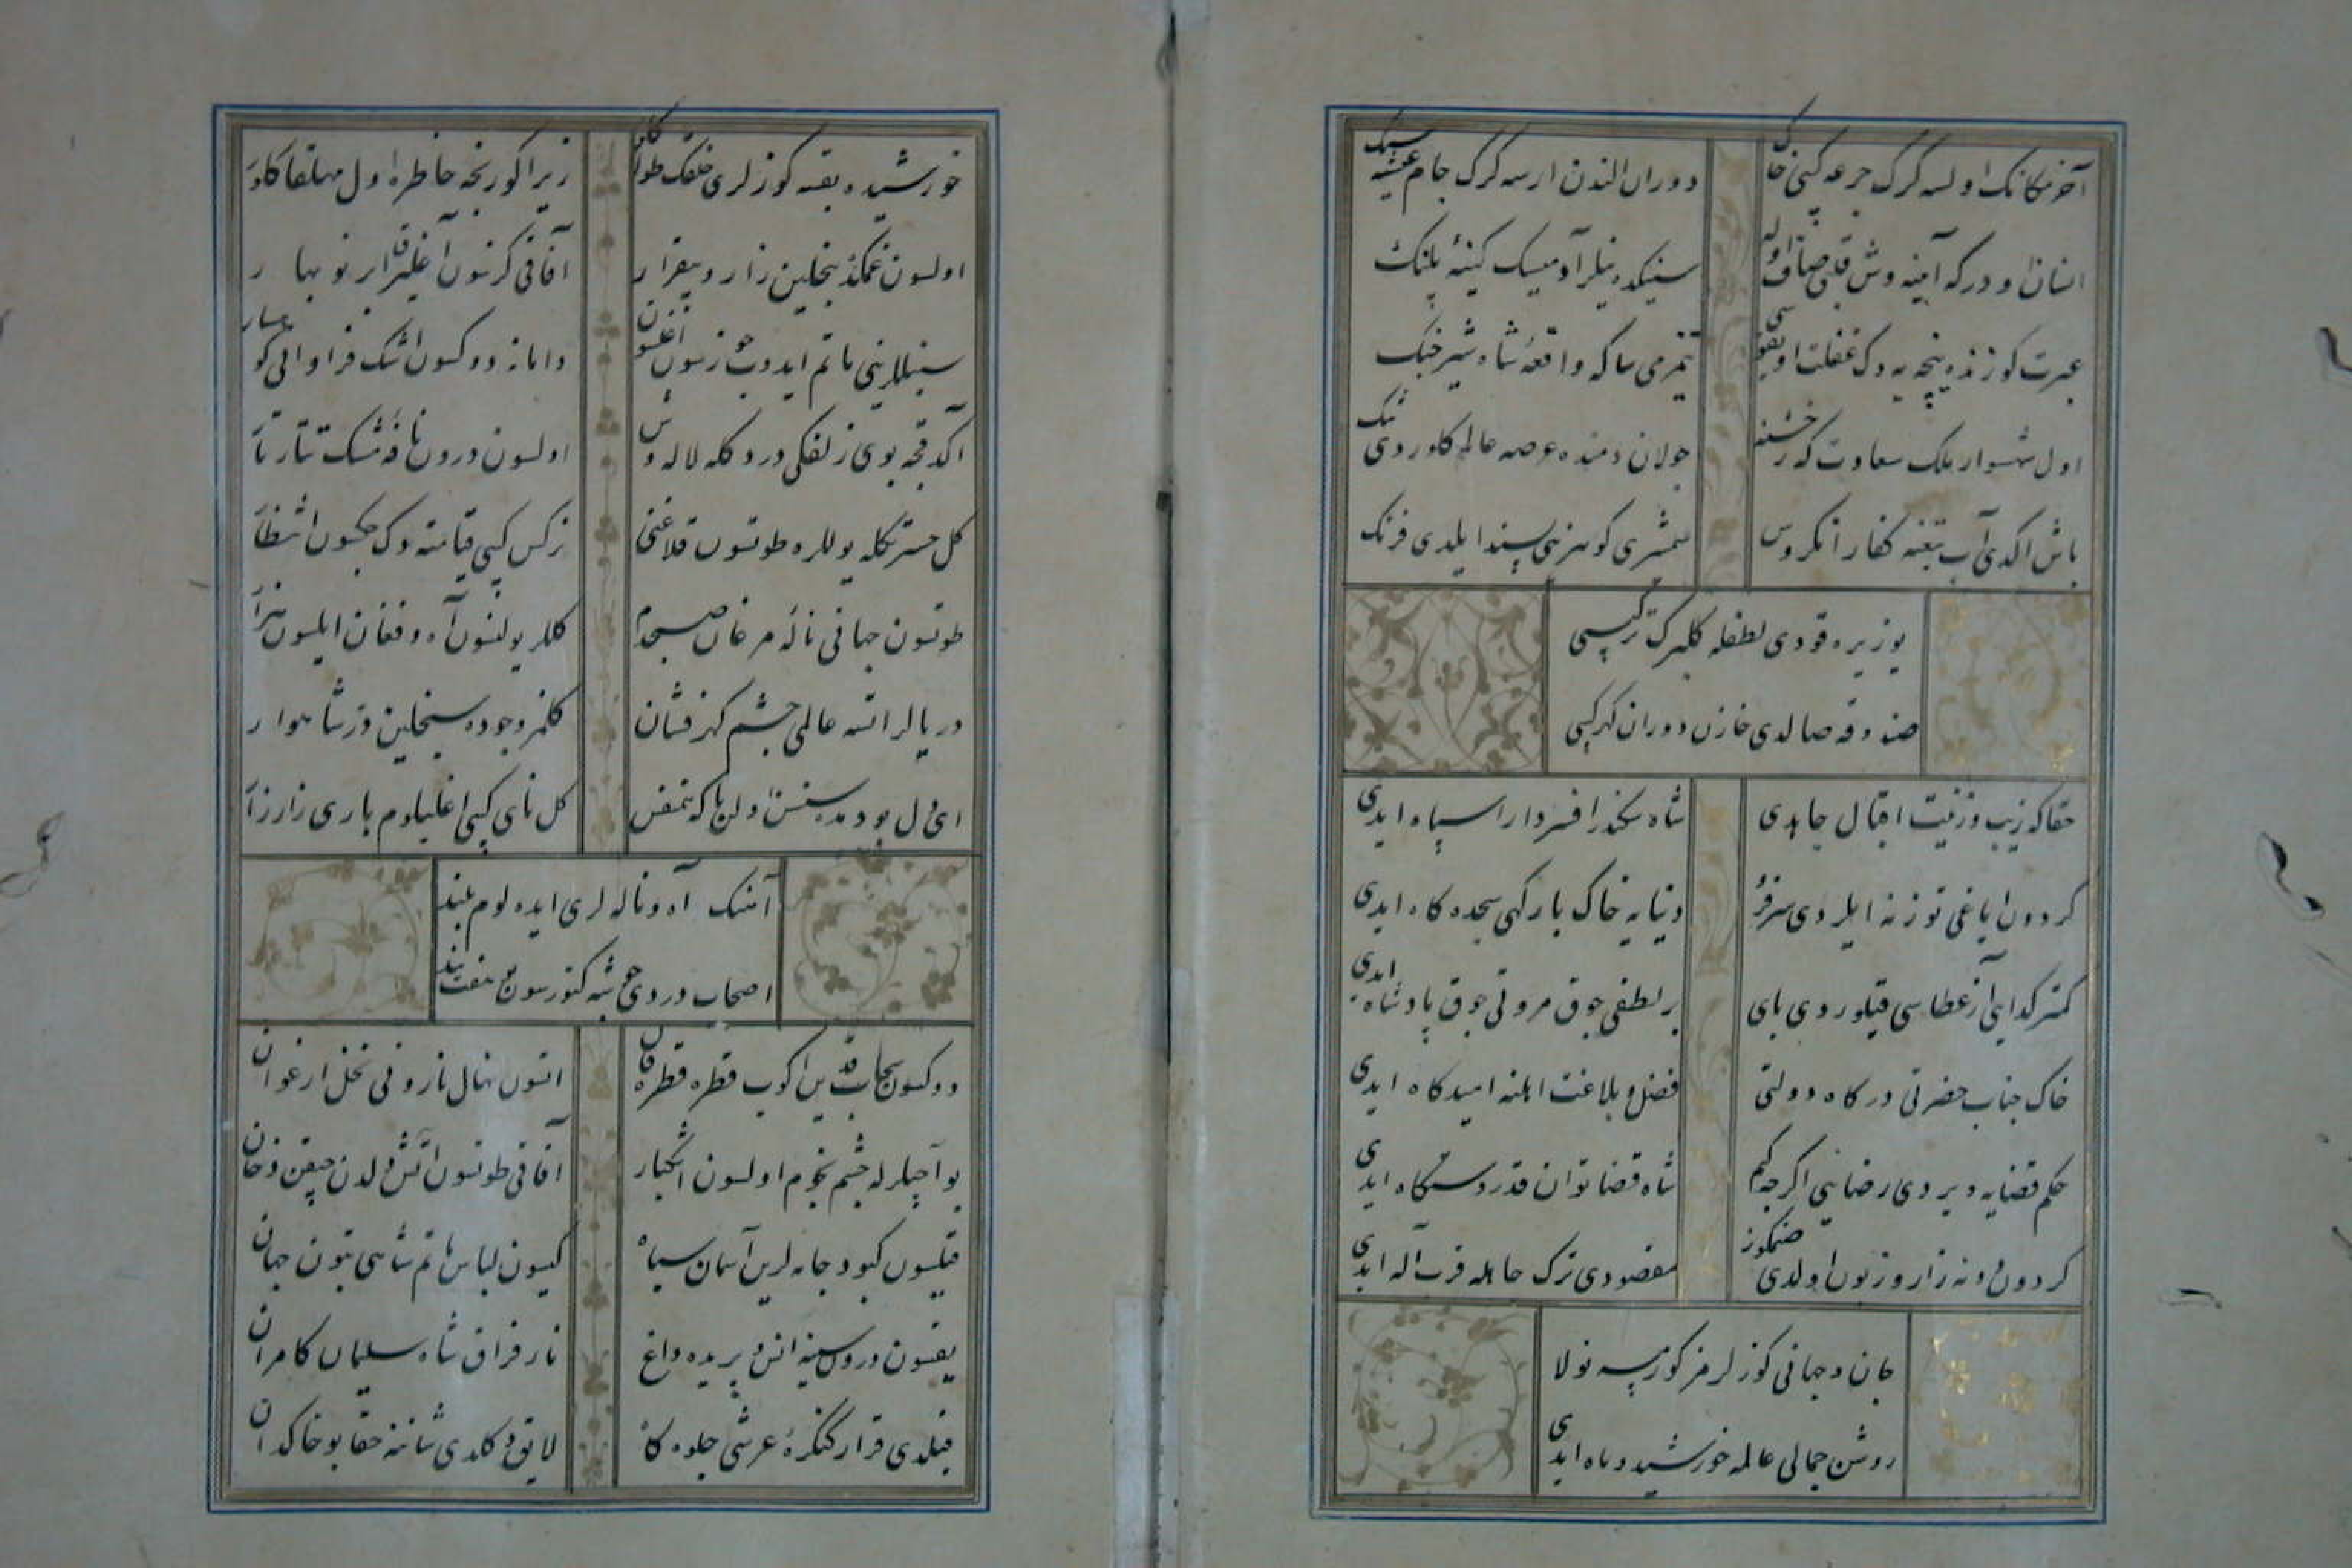 آخر مکانک اولسه گرک جرعه کبی خاک
دوران الندن ارسه گرک جام عیشه سنک
انسان اودر که آینه وش قلبی صاف اوله
سینکده نیلر آدمیسک کینهٔ پلنک
عبرت کوزنده نیجه یه دک غفلت اویقوسی
یتمزمی سا که واقعهٔ شاه شیر جنک
اول شهسوار ملک سعادت که رخشنه
جولان دمنده عرصه عالم کلوردی تنک
باش اکدی آب تیغنه کفار انکروس
شمشیری کوهرینی پسند ایلدی فرنک
یوزیره قودی لطفله کلبرک تر کبی
صندوقه صالدی خازن دوران کهر کبی
حقا که زیب و زینت اقبال و جاه ایدی
شاه سکندر افسر دارا سپاه ایدی
کردون ایاغی توزنه ایلردی سرفرو
دنیایه خاک بارکهی سجده کاه ایدی
کمتر کدایی آز عطاسی قیلوردی بای
بر لطفی چوق مروتی چوق پادشاه ایدی
خاک جناب حضرتی درکاه دولتی
فضل و بلاغت اهلنه امیدکاه ایدی
حکم قضایه ویردی رضایی اکرچه کیم
شاه قضا توان قدر دستکاه ایدی
کردون دونه زار و زبون اولدی صنمکوز
مقصودی ترک جاهله قرب اله ایدی
جان و جهانی کوزلرمز کورمسه نولا
روشن جمالی عالمه خورشید و ماه ایدی
خورشیده بقسه کوزلری خلقک طوله کلور
زیرا کورنجه خاطره اول مهلقا کلور
اولسون غمکده بنجلین زار و بیقرار
آفاقی کزسون آغلیه رق ابر نوبهار
سنبللرینی ماتم ایدوب چوزسون آغلسون
دامانه دوکسون اشک فراوانی کوهسار
آکدقجه بوی زلفکی دردکله لاله وش
اولسون درون نافهٔ مشک تتار تار
کل حسرتکله یوللره طوتسون قولاغنی
نرکس کبی قیامته دک چکسون انتظار
طوتسون جهانی نالهٔ مرغان صبحدم
کللر یولنسون آه و فغان ایلسون هزار
دریالر اتسه عالمی چشم کهرفشان
کلمز وجوده سنجلین در شاهوار
ای دل بو دمده سنسن اولن باکه همنفس
کل نای کبی اغلیالوم باری زار زار
آهنک آه و ناله لری ایده لوم بلند
اصحاب دردی جوشه کتورسون بو هفت بند
دوکسون سحاب قدین اکوب قطره قطره قان
اتسون نهال نارونی نخل ارغوان
بو آجیلرله چشم نجوم اولسون اشکبار
آفاقی طوتسون آتش دلدن چیقن دخان
قیلسون کبود جامه لرین آسمان سیاه
کیسون لباس ماتم شاهی بتون جهان
یقسون درون سینهٔ انس و پریده داغ
نار فراق شاه سلیمان کامران
قیلدی قرار کنکرهٔ عرشی جلوه کاه
لایق دکلدی شاننه حقا بو خاکدان